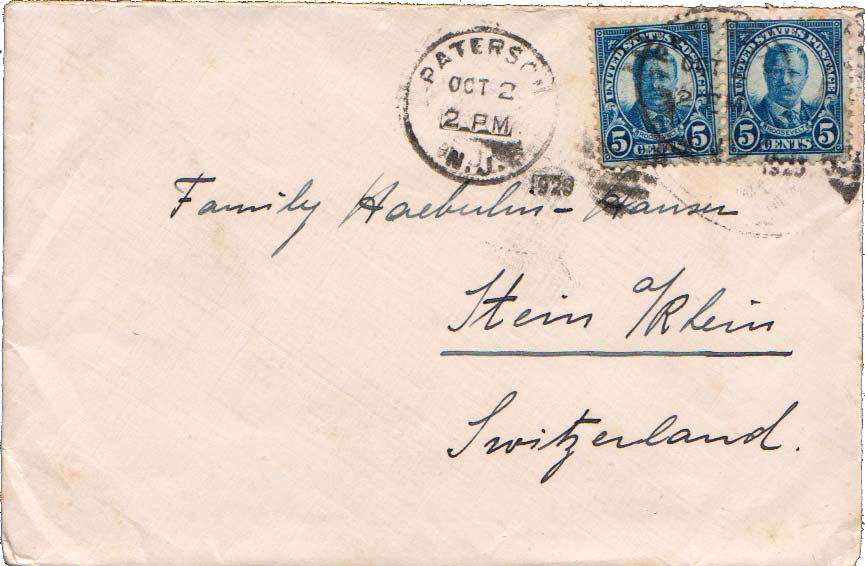 PATERSON
OCT 2
2 PM
N.J.
1929
UNITED STATES POSTAGE
ROOSEVELT
5 CENTS 5
UNITED STATES POSTAGE
ROOSEVELT
5 CENTS 5
1929
Family Haeberlin-Hanser
Stein a/Rhein
Switzerland.